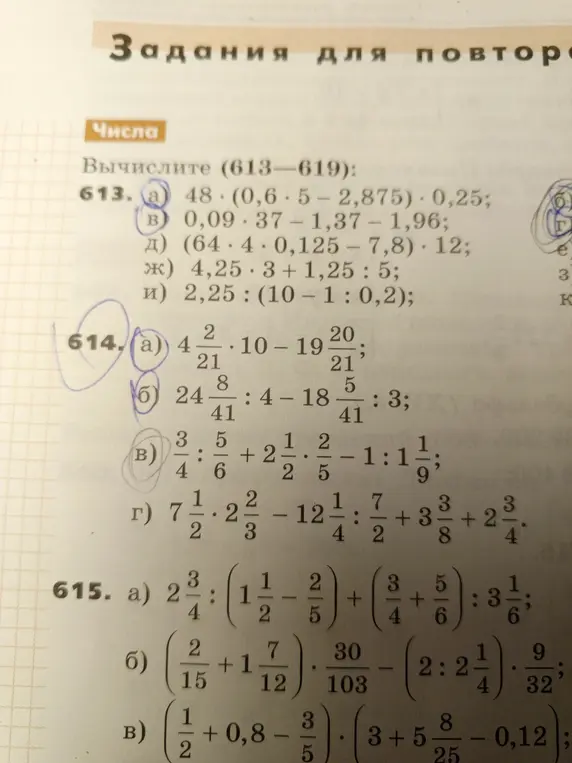 Задания для повтор
Числа
Вычислите (613—619):
613. а) 48 · (0,6 · 5 – 2,875) · 0,25; б)
в) 0,09 · 37 – 1,37 – 1,96; г)
д) (64 · 4 · 0,125 – 7,8) · 12; е)
ж) 4,25 · 3 + 1,25 : 5; з
и) 2,25 : (10 – 1 : 0,2); к
614. а) 4 2/21 · 10 – 19 20/21;
б) 24 8/41 : 4 – 18 5/41 : 3;
в) 3/4 : 5/6 + 2 1/2 · 2/5 – 1 : 1 1/9;
г) 7 1/2 · 2 2/3 – 12 1/4 : 7/2 + 3 3/8 + 2 3/4.
615. а) 2 3/4 : (1 1/2 – 2/5) + (3/4 + 5/6) : 3 1/6;
б) (2/15 + 1 7/12) · 30/103 – (2 : 2 1/4) · 9/32;
в) (1/2 + 0,8 – 3/5) · (3 + 5 8/25 – 0,12);